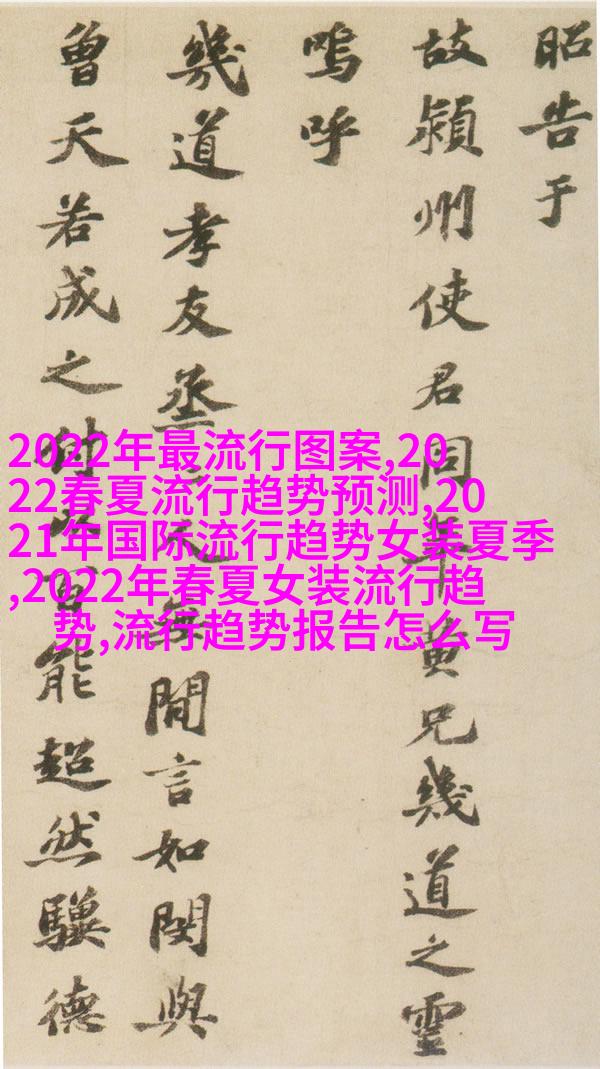 昭告于
故潁州使君同年黄兄幾道之靈
嗚呼
幾道孝友烝無閒言如閔與
曾天若成之付以百能超然驥德
2022年最流行图案,20
22春夏流行趋势预测,20
21年国际流行趋势女装夏季
,2022年春夏女装流行趋
势,流行趋势报告怎么写